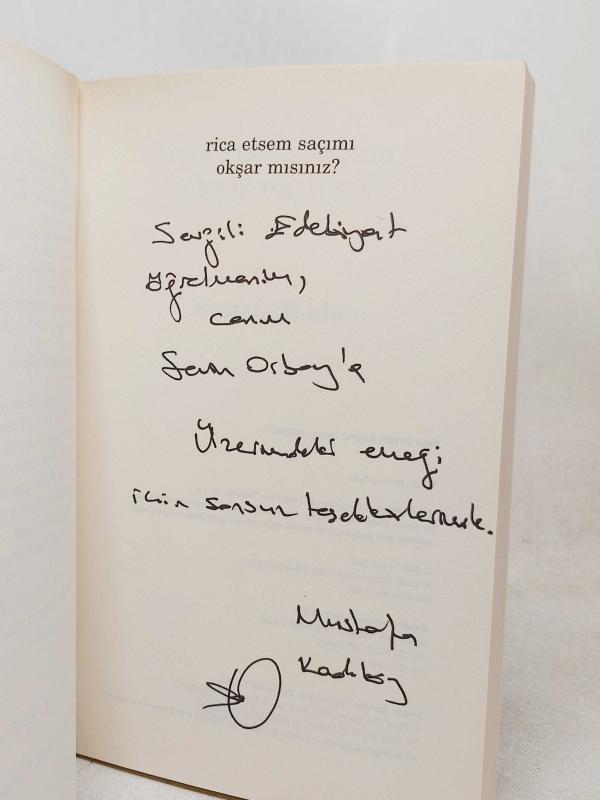 rica etsem saçımı
okşar mısınız?
Sevgili Edebiyat
öğretmenim,
canım
Orbay'a
Üzerimdeki emeği
için sonsuz teşekkürlerimle.
Mustafa
Kadıköy